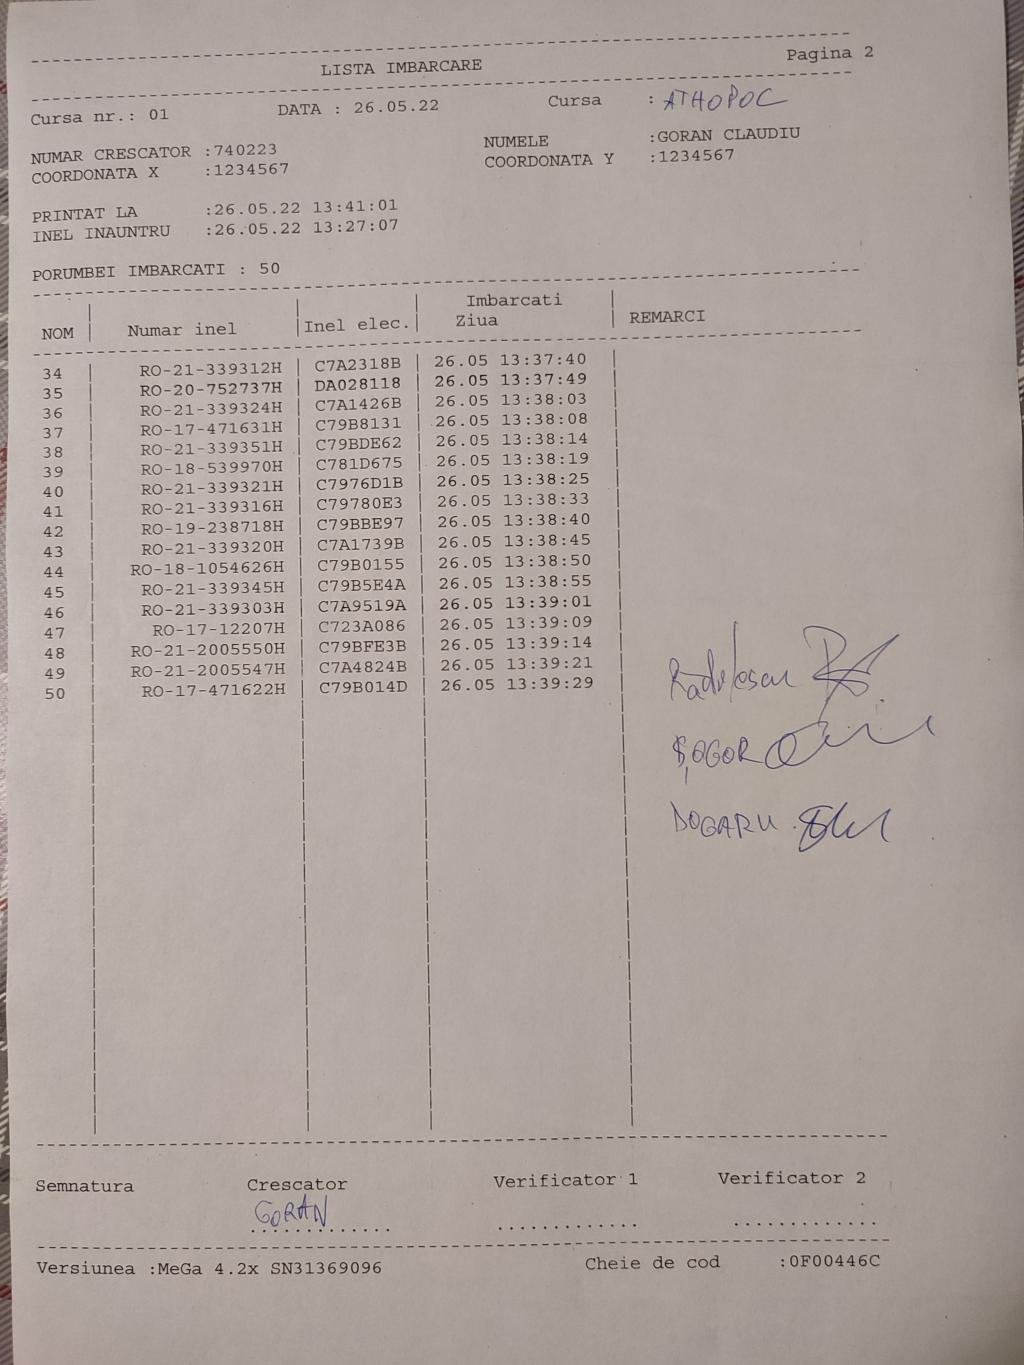 LISTA IMBARCARE Pagina 2
Cursa nr.: 01 DATA : 26.05.22 Cursa : ATHOPOC
NUMAR CRESCATOR :740223 NUMELE :GORAN CLAUDIU
COORDONATA X :1234567 COORDONATA Y :1234567
PRINTAT LA :26.05.22 13:41:01
INEL INAUNTRU :26.05.22 13:27:07
PORUMBEI IMBARCATI : 50
Imbarcati
NOM Numar inel Inel elec. Ziua REMARCI
34 RO-21-339312H C7A2318B 26.05 13:37:40
35 RO-20-752737H DA028118 26.05 13:37:49
36 RO-21-339324H C7A1426B 26.05 13:38:03
37 RO-17-471631H C79B8131 26.05 13:38:08
38 RO-21-339351H C79BDE62 26.05 13:38:14
39 RO-18-539970H C781D675 26.05 13:38:19
40 RO-21-339321H C7976D1B 26.05 13:38:25
41 RO-21-339316H C79780E3 26.05 13:38:33
42 RO-19-238718H C79BBE97 26.05 13:38:40
43 RO-21-339320H C7A1739B 26.05 13:38:45
44 RO-18-1054626H C79B0155 26.05 13:38:50
45 RO-21-339345H C79B5E4A 26.05 13:38:55
46 RO-21-339303H C7A9519A 26.05 13:39:01
47 RO-17-12207H C723A086 26.05 13:39:09
48 RO-21-2005550H C79BFE3B 26.05 13:39:14
49 RO-21-2005547H C7A4824B 26.05 13:39:21
50 RO-17-471622H C79B014D 26.05 13:39:29
Radulescu
ȘOGOR
DOGARU
Semnatura Crescator Verificator 1 Verificator 2
GORAN
Versiunea :MeGa 4.2x SN31369096 Cheie de cod :0F00446C